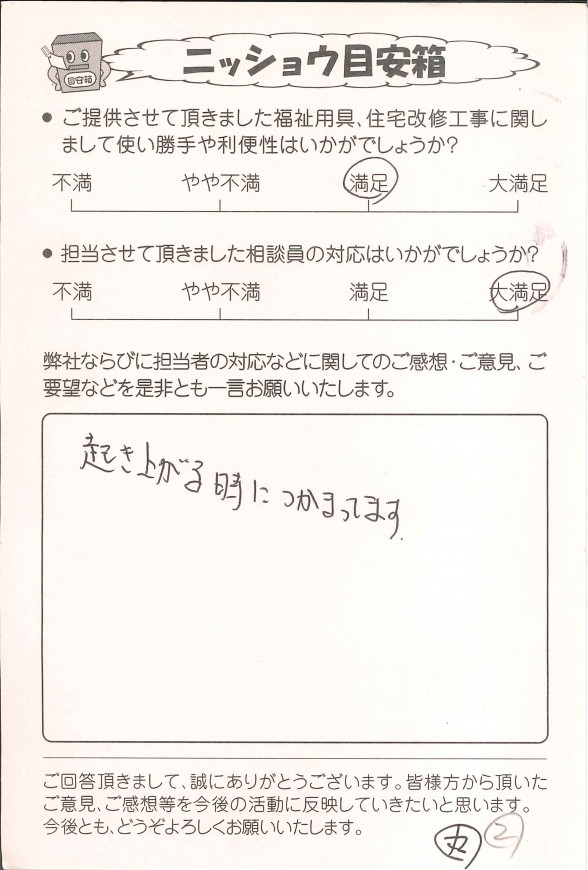 目安箱
ニッショウ目安箱
● ご提供させて頂きました福祉用具、住宅改修工事に関し
まして使い勝手や利便性はいかがでしょうか?
不満 やや不満 満足 大満足
● 担当させて頂きました相談員の対応はいかがでしょうか?
不満 やや不満 満足 大満足
弊社ならびに担当者の対応などに関してのご感想・ご意見、ご
要望などを是非とも一言お願いいたします。
起き上がる時につかまってます
ご回答頂きまして、誠にありがとうございます。皆様方から頂いた
ご意見、ご感想等を今後の活動に反映していきたいと思います。
今後とも、どうぞよろしくお願いいたします。
丸 2